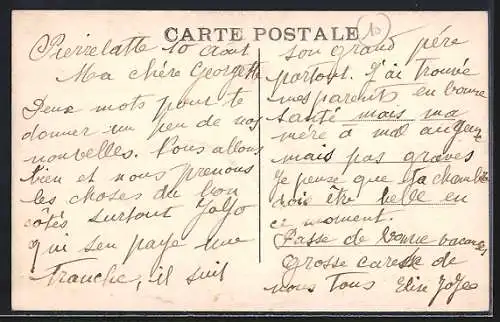 CARTE POSTALE
10
Pierrelatte 10 Août
Ma chère Georgette
Deux mots pour te
donner un peu de nos
nouvelles. Nous allons
bien et nous prenons
les choses du bon
côtés surtout JoJo
qui sen paye une
tranche, il suit
son grand père
partout. J'ai trouvée
mes parents en bonne
santé mais ma
mère a mal au
mais pas graves
Je pense que ta chambre
doit être belle en
ce moment.
Passe de bonne vacances
Grosse caresse de
nous tous JoJo